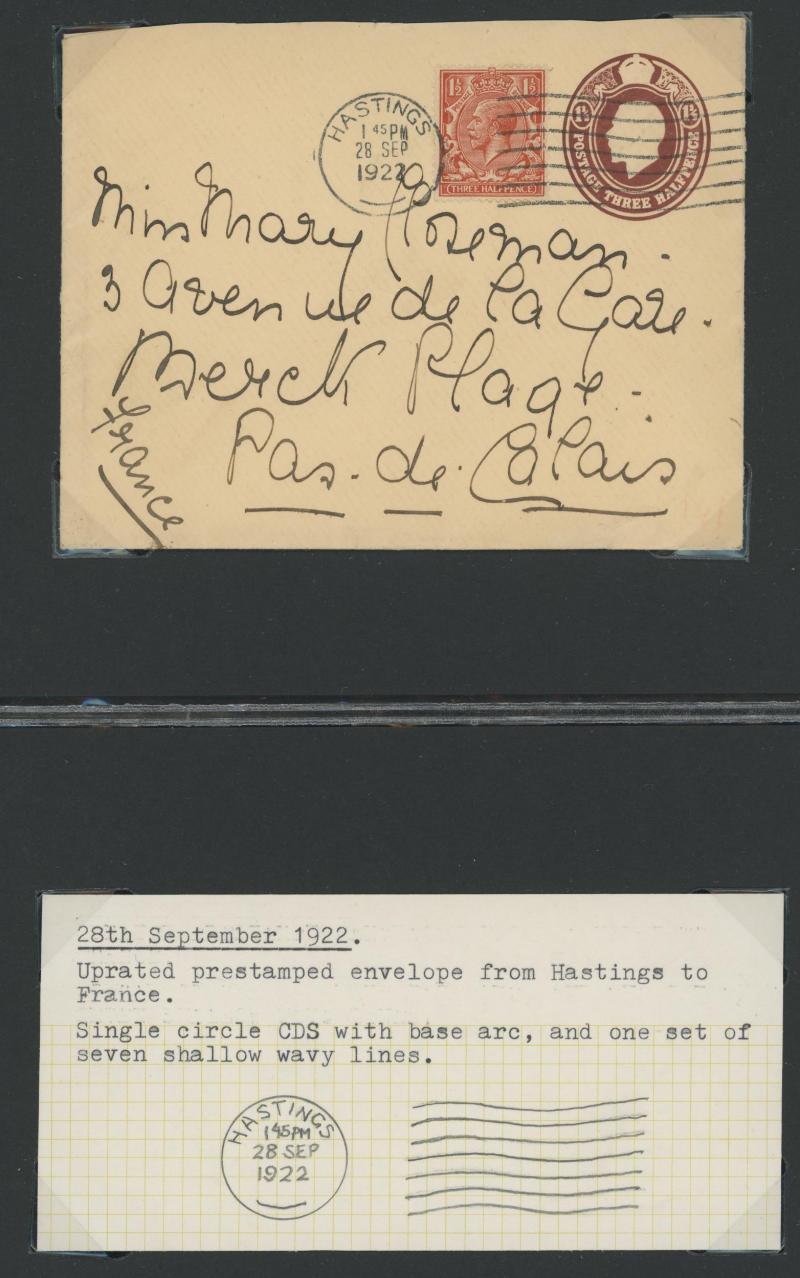 HASTINGS
1 45 PM
28 SEP
1922
1½ 1½
POSTAGE
THREE HALFPENCE
1½ 1½
POSTAGE THREE HALFPENCE
Miss Mary Roseman.
3 Avenue de la Gare.
Berck Plage.
Pas. de. Calais
France
28th September 1922.
Uprated prestamped envelope from Hastings to
France.
Single circle CDS with base arc, and one set of
seven shallow wavy lines.
HASTINGS
1 45 PM
28 SEP
1922